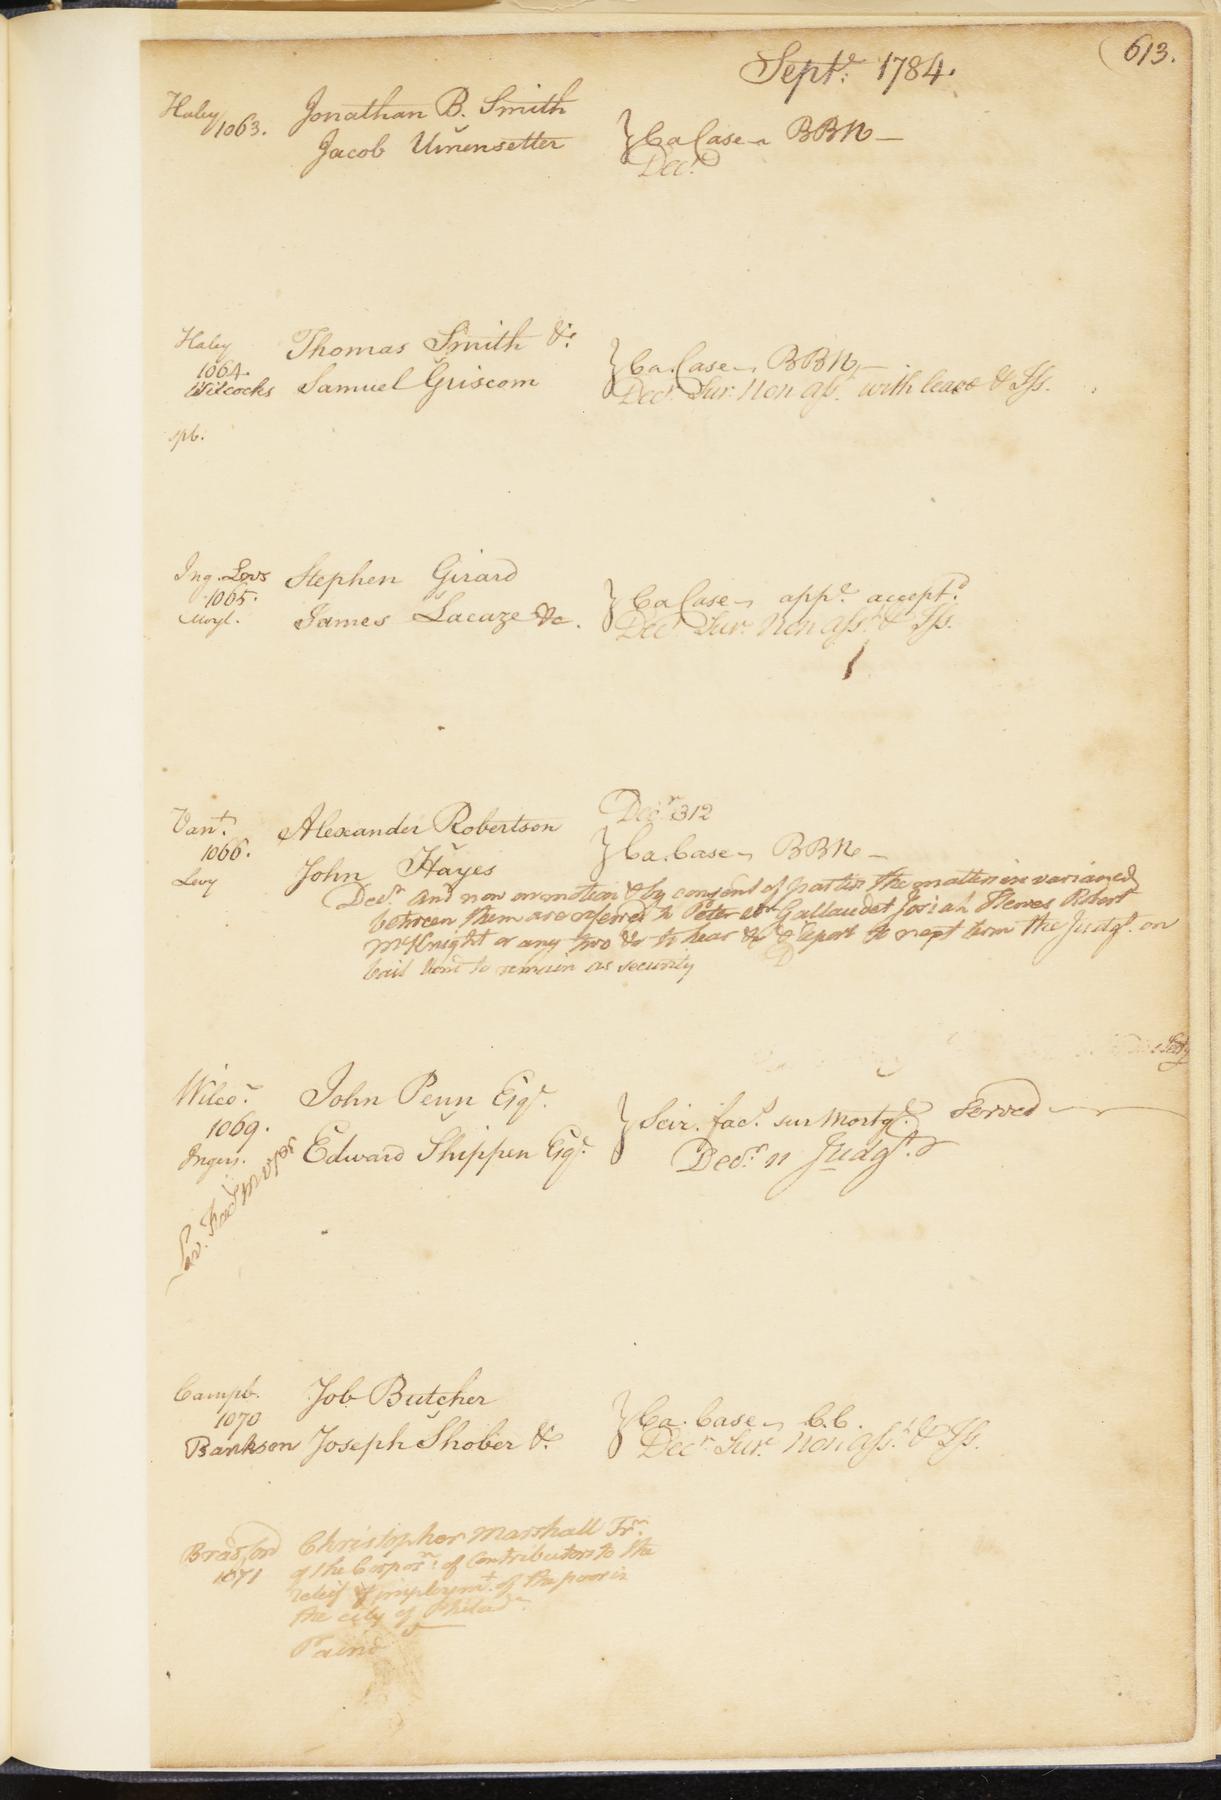 (613.
Septr. 1784.
Haley 1063. Jonathan B. Smith
v
Jacob Umensetter } Ca Case BBN
Decr.
Haley Thomas Smith &c
1064. v } Ca. Case BBN
Wilcocks Samuel Griscom Decr. Sur. Non ass. with leave & Iss.
spb.
Ing. Levs Stephen Girard
1065. v } Ca Case appe. accept.
Moyl. James Lacaze &c. Decr. Sur. Non ass. & Iss.
Vant. Alexander Robertson Decr. 312
1066. v } Ca. Case BBN
Levy John Hayes
Decr. And now on motion & by consent of parties the matters in varianced
between them are referred to Peter Gallaudet Josiah Hewes Robert
McKnight or any two &c to hear &c & Report to next term the Judgt. on
bail bond to remain as security
Wilco. John Penn Esqr.
1069. v } Scir. facs. sur Mortge. Served
Ingers. Edward Shippen Esqr. Decr. 11 Judgt.
Lev. Facs.
Campb. Job Butcher
1070 v } Ca. Case C.C.
Bankson Joseph Shober &c. Decr. Sur. Non Asst. & Iss.
Bradford Christopher Marshall Jr.
1071 of the Corporn. of Contributors to the
relief & employmt. of the poor in
the city of Philada.
v